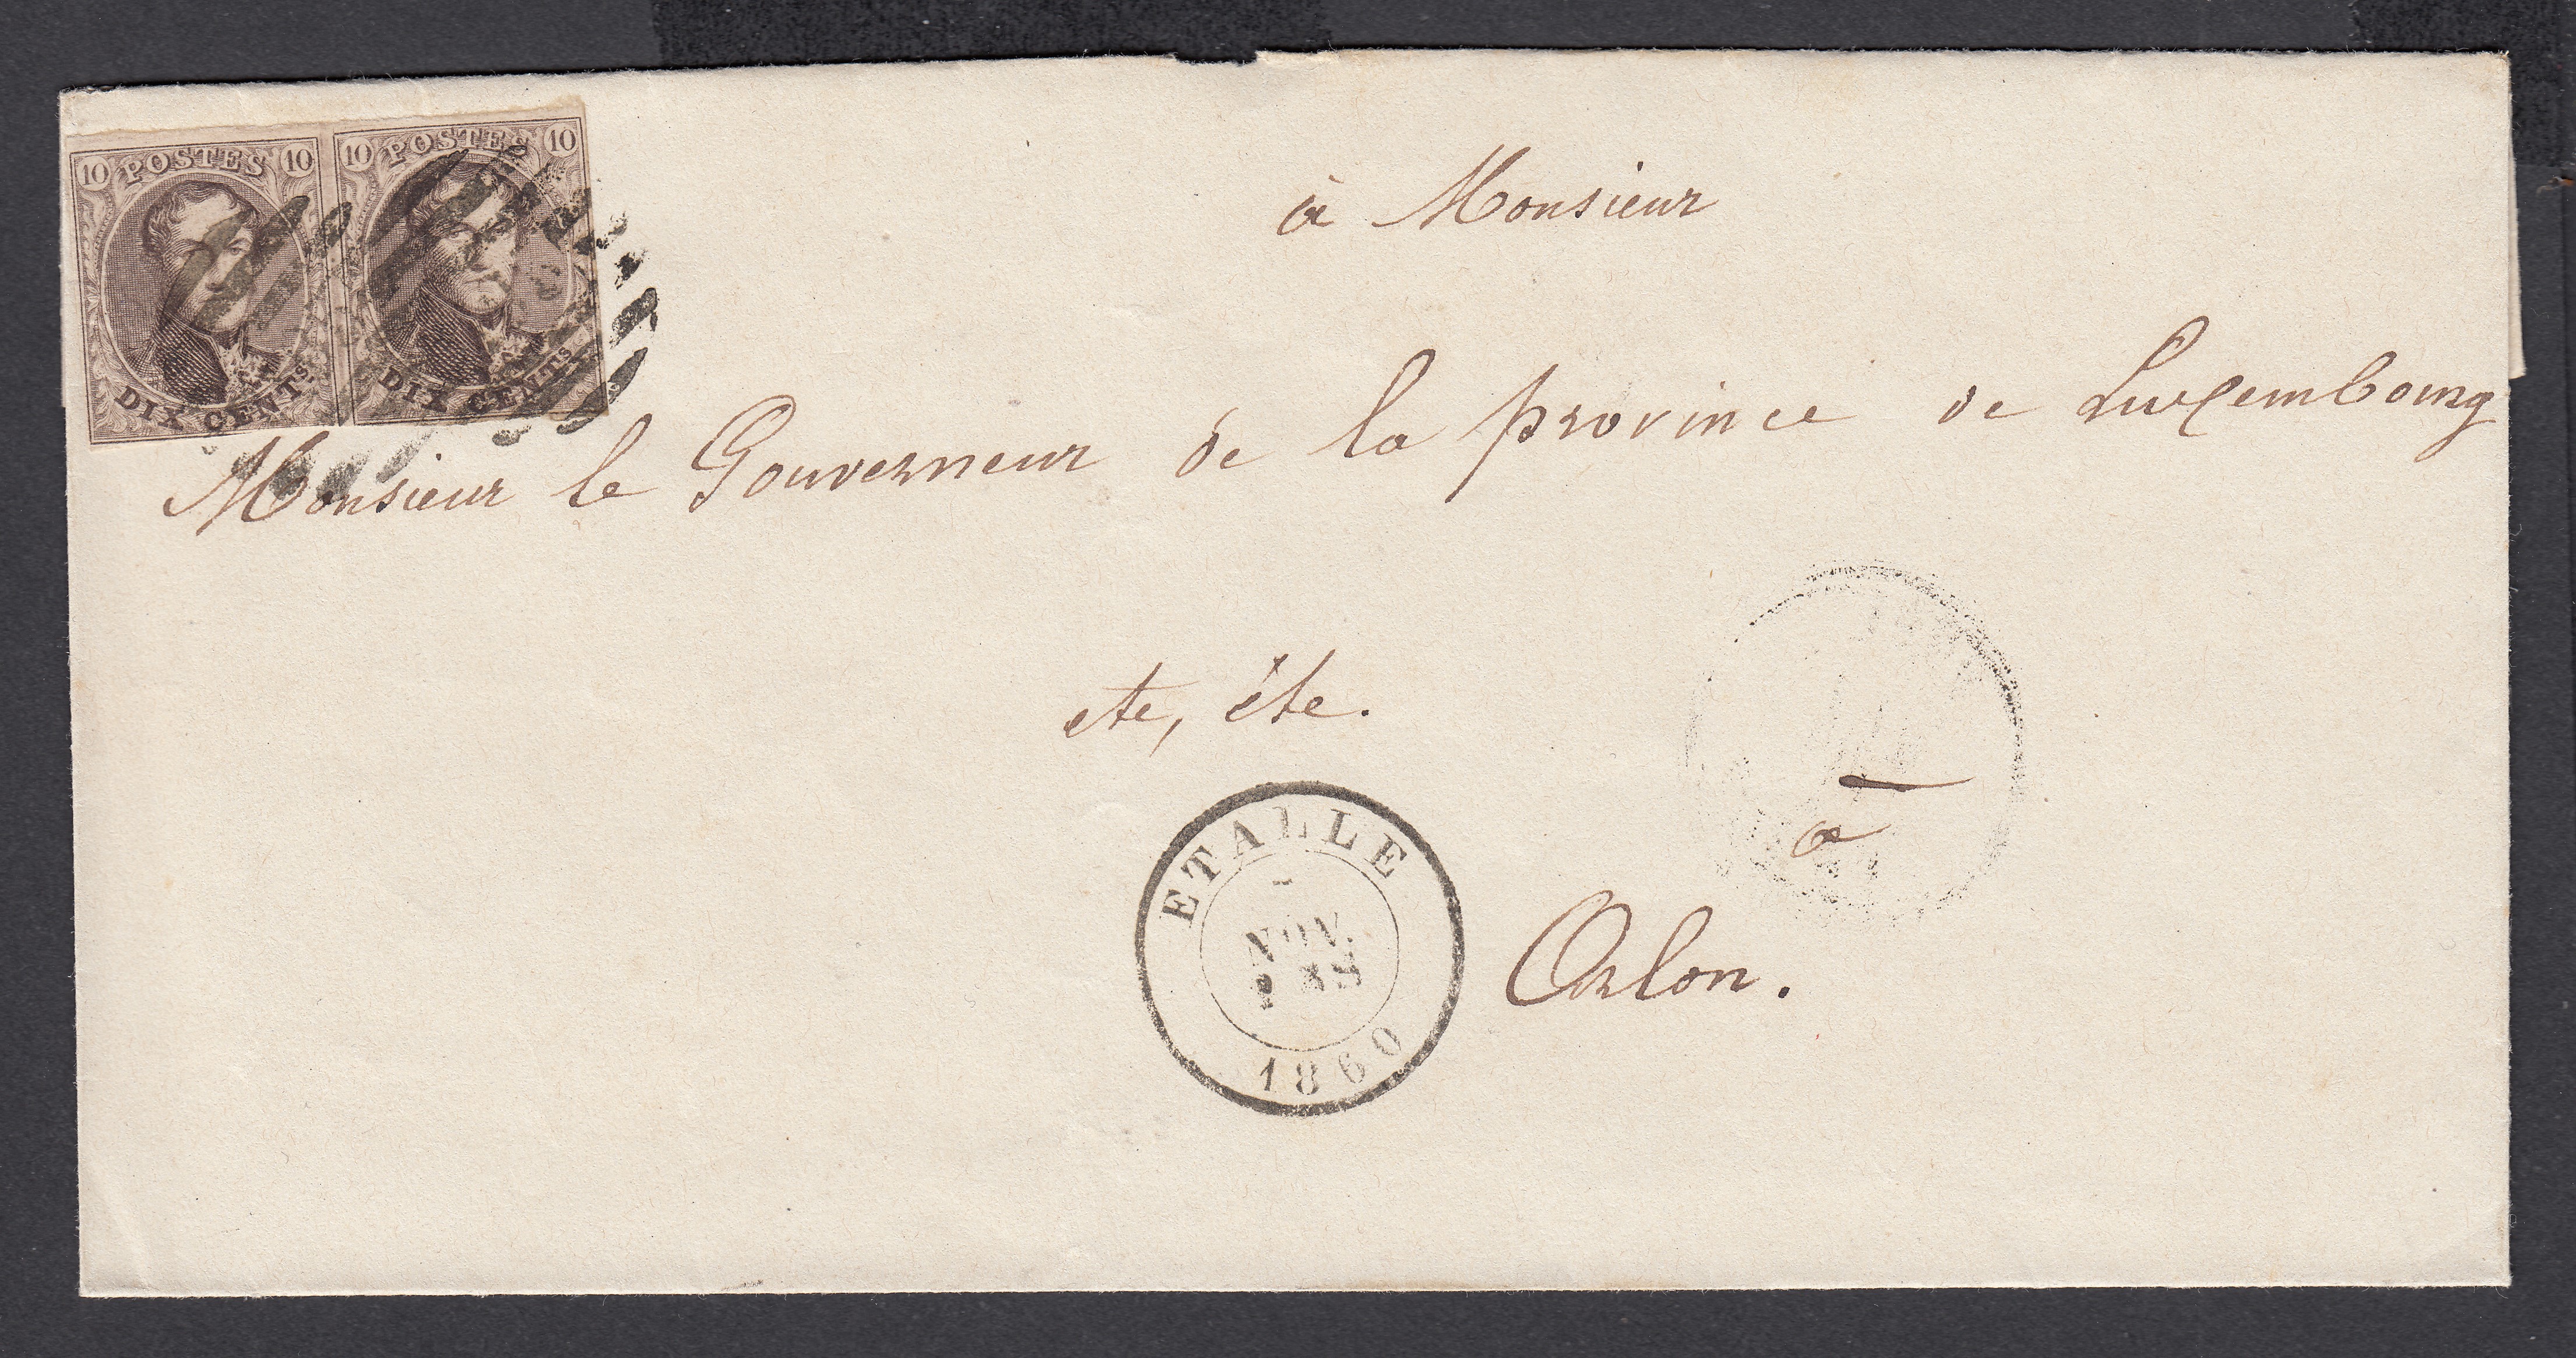 10 POSTES 10
DIX CENTS.
10 POSTES 10
DIX CENTS.
à Monsieur
Monsieur le Gouverneur de la province de Luxembourg
etc, étc.
à
Arlon.
ETALLE
NOV.
1860